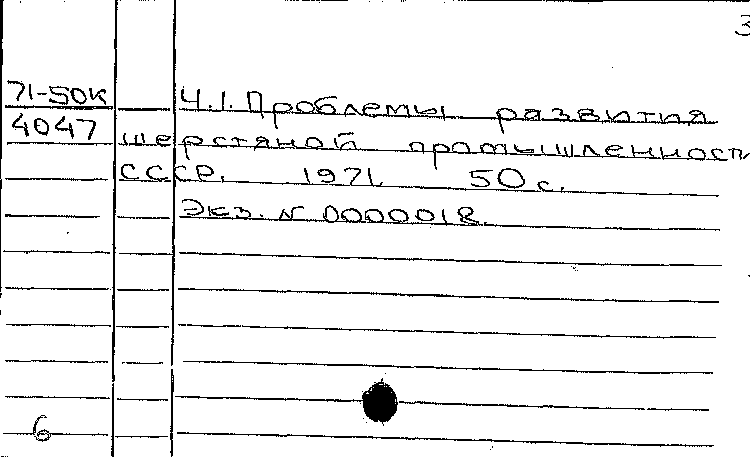 3
71-50к
Ч.1. Проблемы развития
4047
шерстяной промышленност
СССР. 1971. 50 с.
Экз. N 0000018.
6